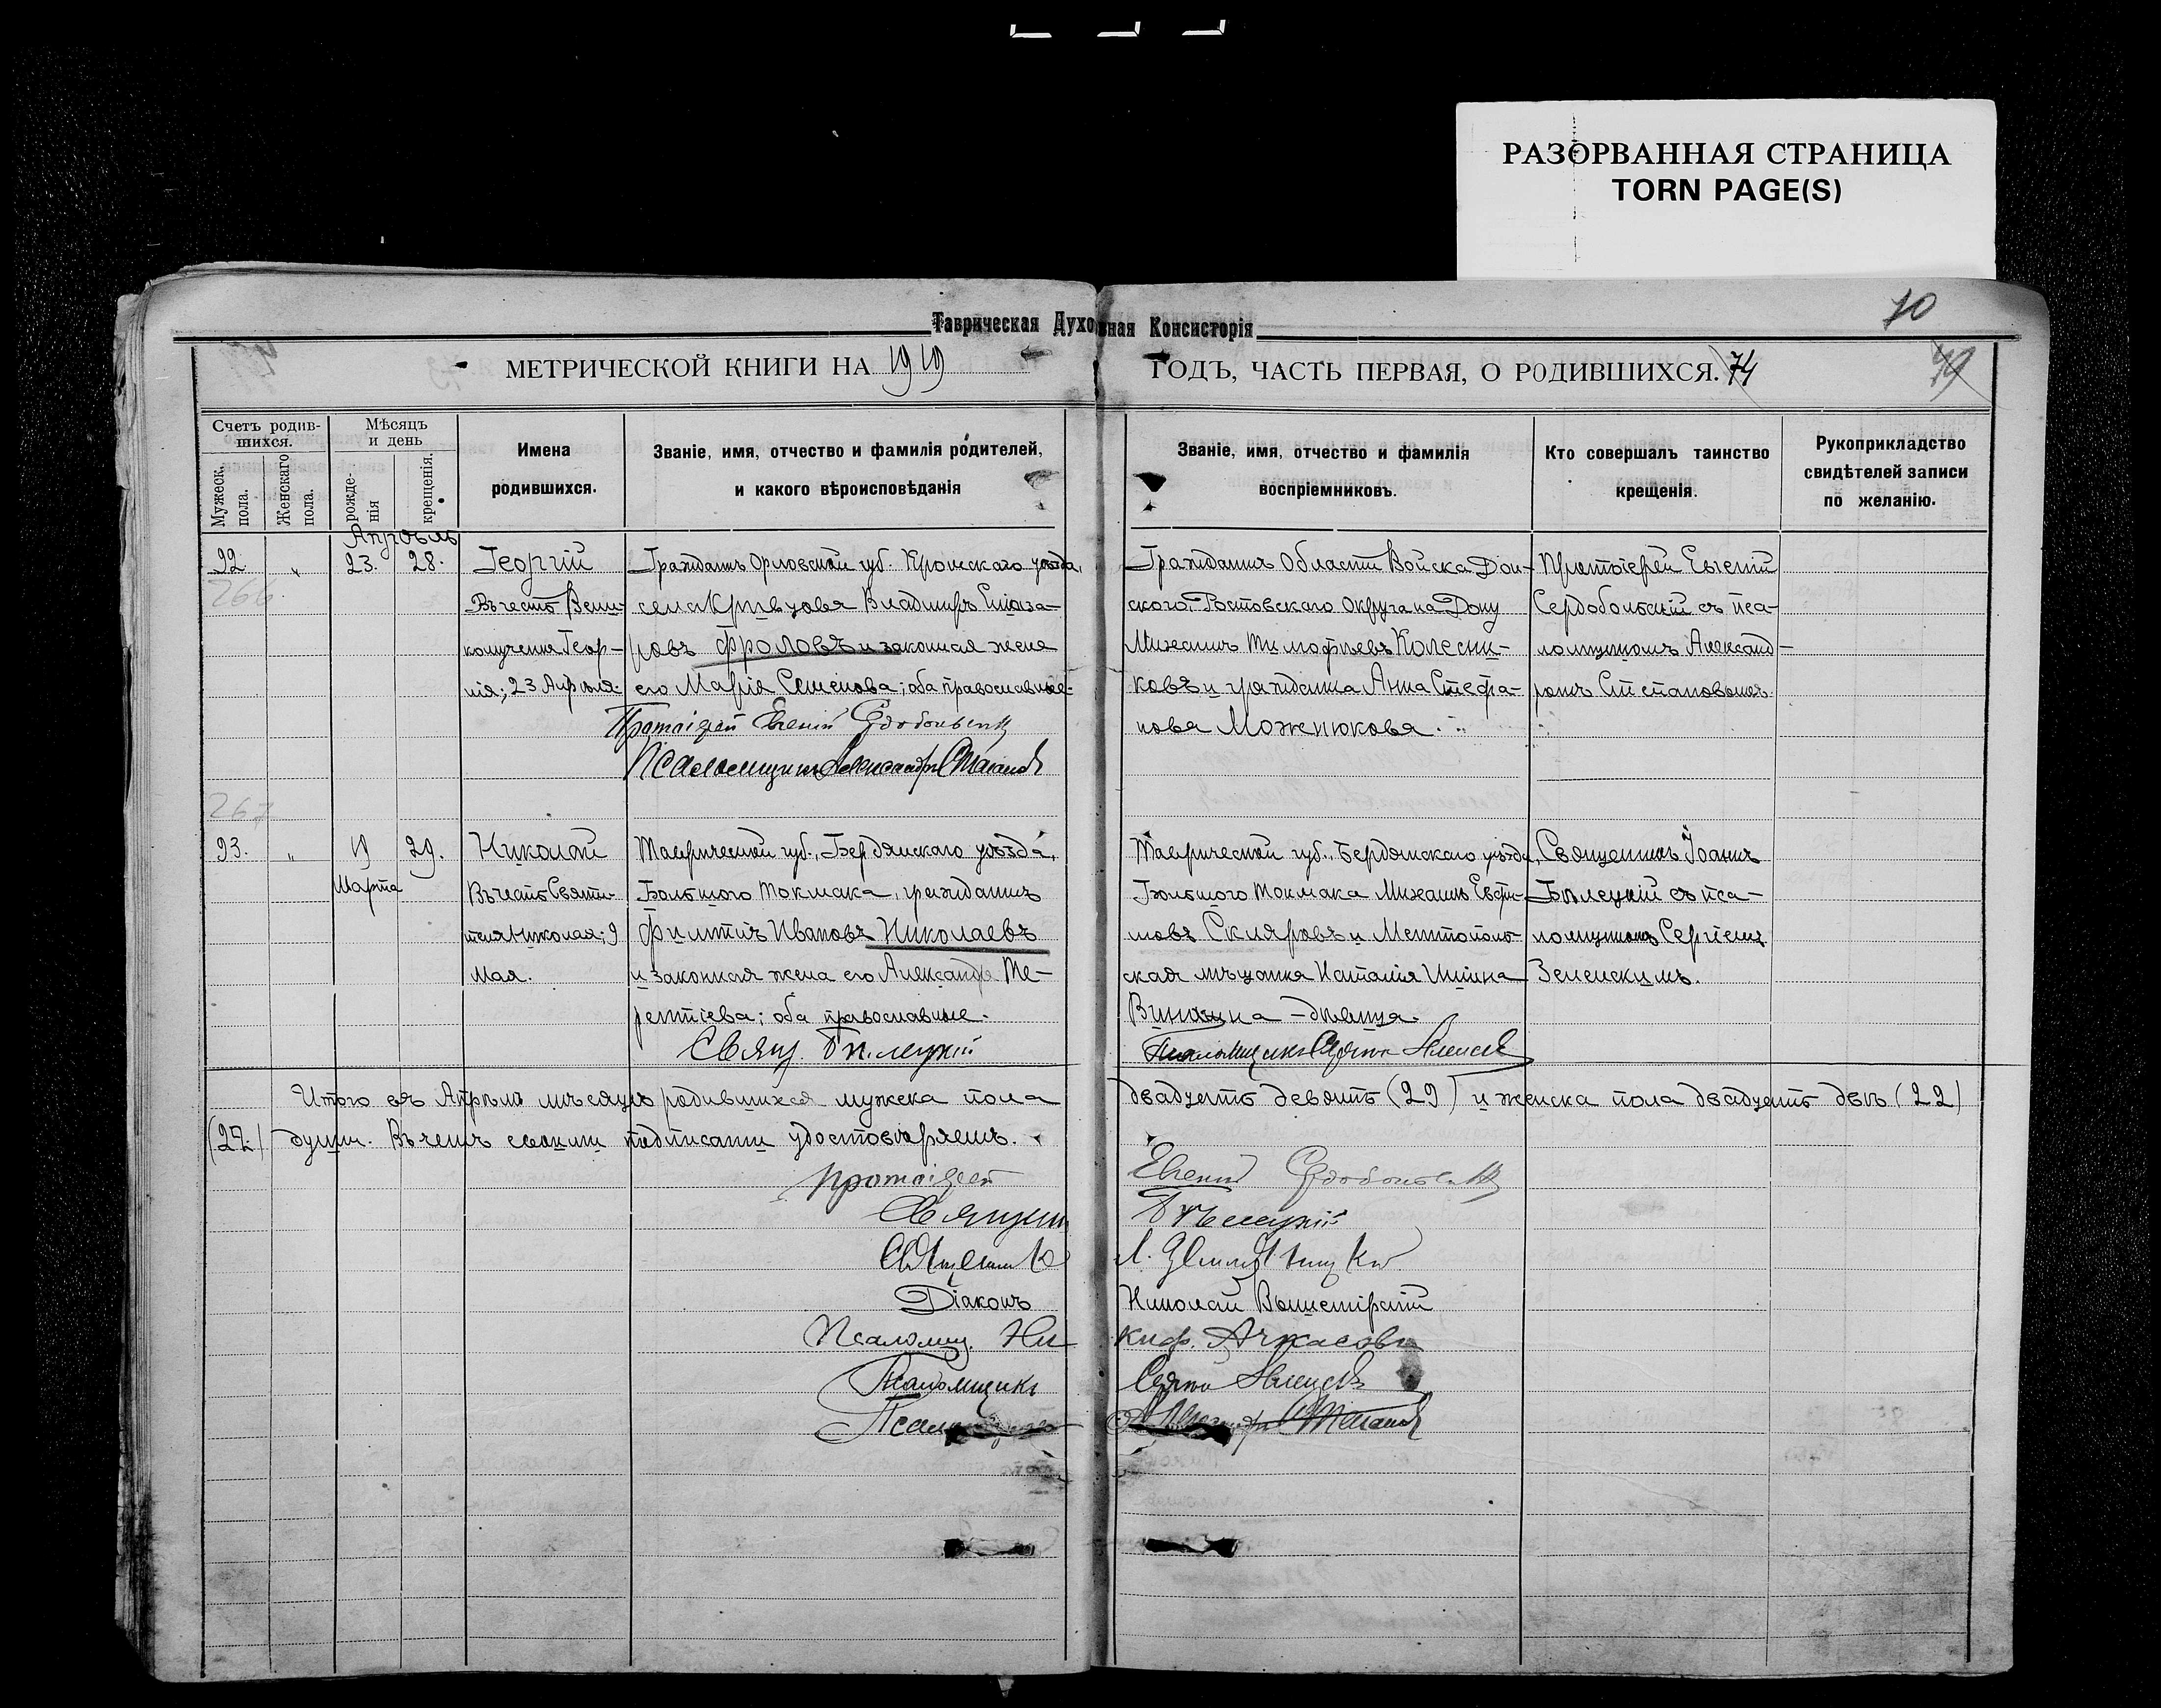 РАЗОРВАННАЯ СТРАНИЦА
TORN PAGE(S)
70
Таврическая Духовная Консисторія
МЕТРИЧЕСКОЙ КНИГИ НА 1919 ГОДЪ, ЧАСТЬ ПЕРВАЯ, О РОДИВШИХСЯ. 74
Счетъ родив-
шихся.
Мужеск.
пола.
Женскаго
пола.
Мѣсяцъ
и день
рожде-
нія
крещенія.
Имена
родившихся.
Званіе, имя, отчество и фамилія родителей,
и какого вѣроисповѣданія
Званіе, имя, отчество и фамилія
воспріемниковъ.
Кто совершалъ таинство
крещенія.
Рукоприкладство
свидѣтелей записи
по желанію.
Апрѣль
92. „ 23. 28.
266
Георгій
Въ честь Вели-
комученика Геор-
гія; 23 Апрѣля.
Гражданинъ Орловской губ. Кромскаго уѣзда,
села Кривцова Владиміръ
ровъ Фроловъ и законная жена
его Марія Семенова; оба православные.
Протоіерей Евгеній Сердобольскій
Псаломщикъ Александръ Степановъ
Гражданинъ Области Войска Дон-
ского Ростовскаго Округа на Дону
Михаилъ Тимофѣевъ Колесни-
ковъ и гражданка Анна Стефа-
нова Моженюкова.
Протоіерей Евгеній
Сердобольскій съ пса-
ломщикомъ Александ-
ромъ Степановымъ.
267
93. „ 19 29.
Марта
Николай
Въ честь Святи-
теля Николая; 9
Мая.
Таврической губ., Бердянскаго уѣзда,
Большого Токмака, гражданинъ
Филиппъ Ивановъ Николаевъ
и законная жена его Александра Те-
рентіева; оба православные.
Свящ. Бѣлецкій
Таврической губ., Бердянскаго уѣзда,
Большого Токмака Михаилъ Евфи-
мовъ Скляровъ и Мелитополь-
ская мѣщанка Наталія Ильина
девица.
Псаломщикъ Сергій Зеленскій
Священникъ Іоаннъ
Бѣлецкій съ пса-
ломщикомъ Сергіемъ
Зеленскимъ.
Итого въ Апрѣлѣ мѣсяцѣ родившихся мужеска пола двадцать девять (29) и женска пола двадцать двѣ (22)
души. Въ чемъ своими подписами удостовѣряемъ.
Протоіерей Евгеній Сердобольскій
Священникъ Бѣлецкій
Священникъ
Діаконъ Николай
Псаломщ. Никиф. Ачкасовъ
Псаломщикъ Сергій Зеленскій
Александръ Степановъ